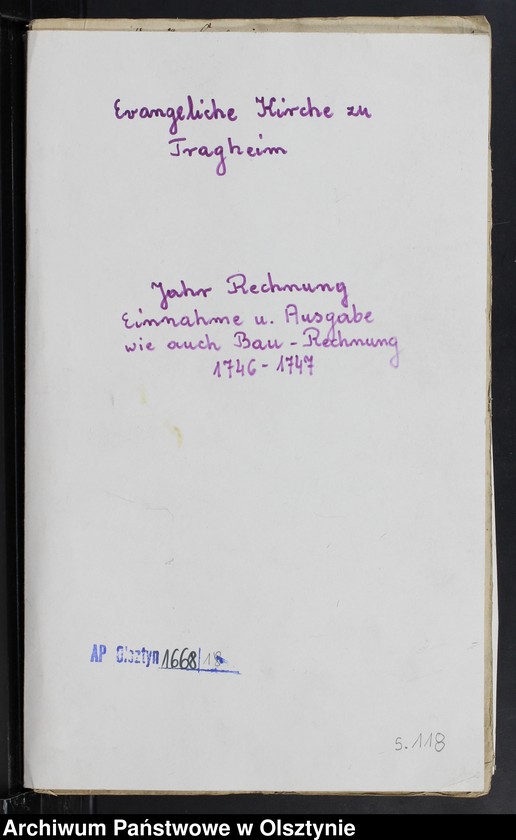 Evangeliche Kirche zu
Tragheim
Jahr Rechnung
Einnahme u. Ausgabe
wie auch Bau - Rechnung
1746 - 1747
AP Olsztyn 1668/18
s. 118
Archiwum Państwowe w Olsztynie